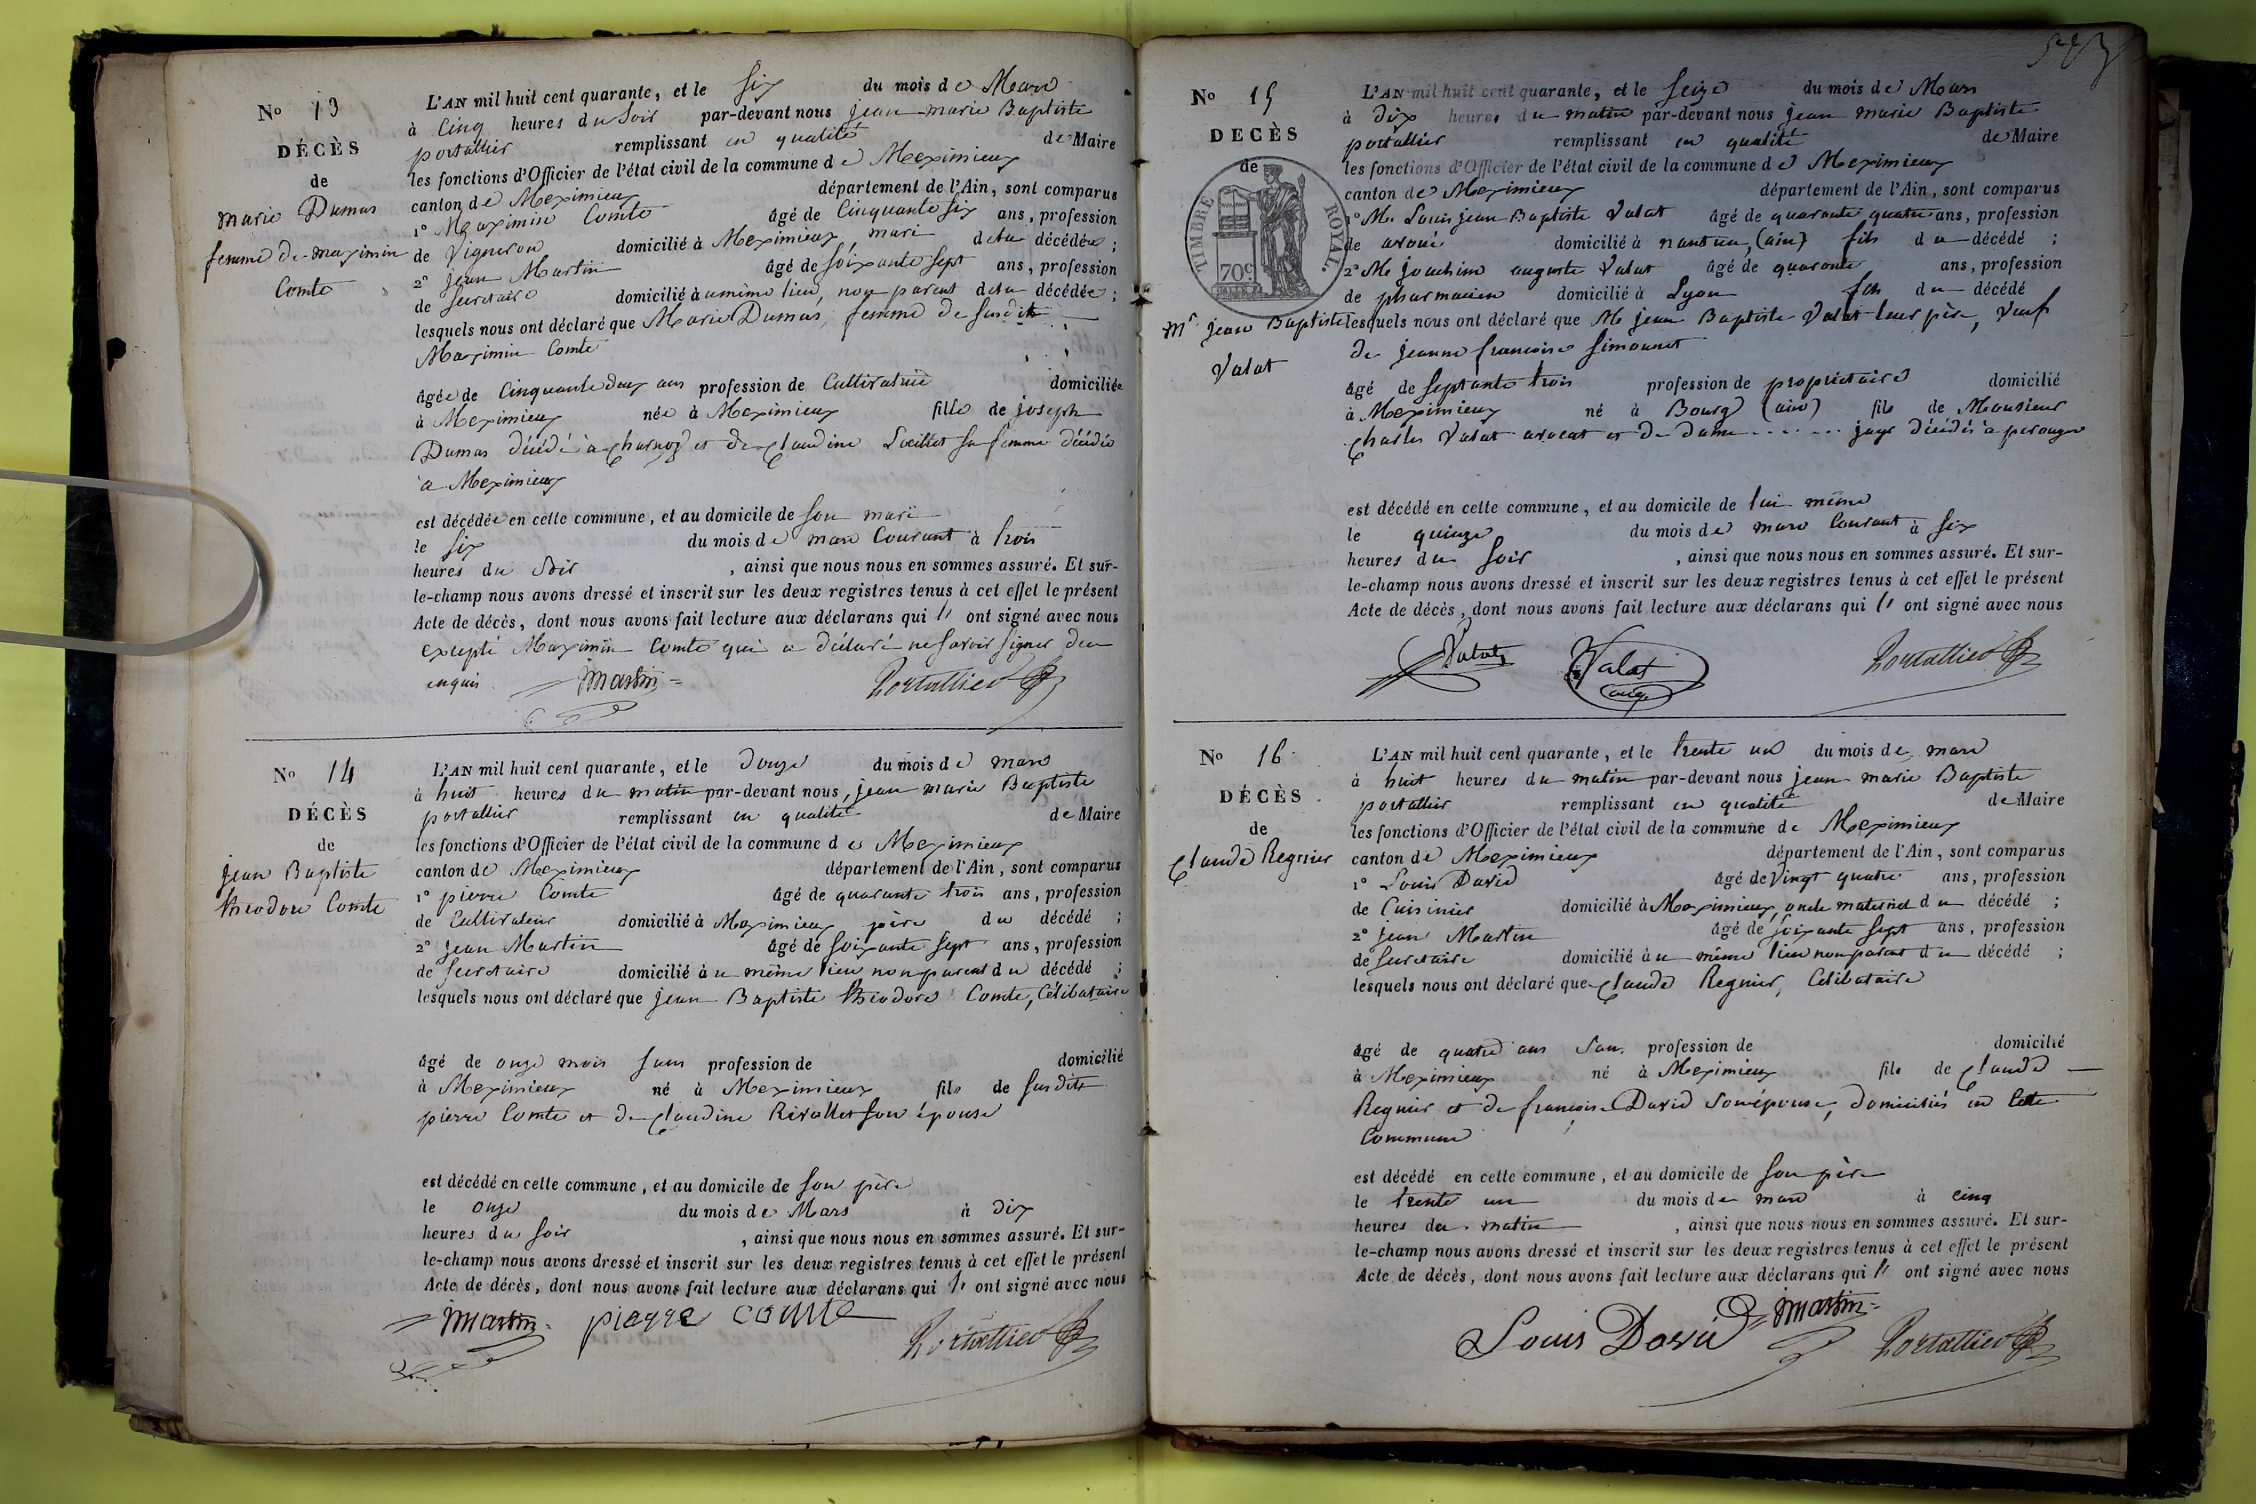 No 13
DÉCÈS
de
Marie Dumas
femme de maximin
Comte
L'AN mil huit cent quarante, et le Six du mois de Mars
à Cinq heures du Soir par-devant nous jean marie Baptiste
portallier remplissant en qualité de Maire
les fonctions d'Officier de l'état civil de la commune de Meximieux
canton de Meximieux département de l'Ain, sont comparus
1° Maximin Comte âgé de Cinquante Six ans, profession
de Vigneron domicilié à Meximieux, mari de la décédée ;
2° jean Martin âgé de soixante sept ans, profession
de Secretaire domicilié à u même lieu, non parent de la décédée ;
lesquels nous ont déclaré que Marie Dumas, femme de susdit
Maximin Comte
âgée de Cinquante deux ans profession de Cultivatrice domiciliée
à Meximieux née à Meximieux fille de joseph
Dumas décédé à Charnoz et de Claudine sa femme décédée
a Meximieux
est décédée en cette commune, et au domicile de son mari
le Six du mois de mars Courant à trois
heures du Soir , ainsi que nous nous en sommes assuré. Et sur-
le-champ nous avons dressé et inscrit sur les deux registres tenus à cet effet le présent
Acte de décès, dont nous avons fait lecture aux déclarans qui ont signé avec nous
excepté Maximin Comte qui a déclaré ne savoir signer de ce
enquis
Martin Portallier
No 14
DÉCÈS
de
jean Baptiste
théodore Comte
L'AN mil huit cent quarante, et le douze du mois de mars
à huit heures du matin par-devant nous, jean marie Baptiste
portallier remplissant en qualité de Maire
les fonctions d'Officier de l'état civil de la commune de Meximieux
canton de Meximieux département de l'Ain, sont comparus
1° pierre Comte âgé de quarante trois ans, profession
de Cultivateur domicilié à Meximieux père du décédé ;
2° jean Martin âgé de soixante sept ans, profession
de Secretaire domicilié à u même lieu non parent du décédé ;
lesquels nous ont déclaré que jean Baptiste théodore Comte, Célibataire
âgé de onze mois sans profession de domicilié
à Meximieux né à Meximieux fils de susdits
pierre Comte et de Claudine Rivollet son épouse
est décédé en cette commune, et au domicile de son père
le onze du mois de Mars à dix
heures du soir , ainsi que nous nous en sommes assuré. Et sur-
le-champ nous avons dressé et inscrit sur les deux registres tenus à cet effet le présent
Acte de décès, dont nous avons fait lecture aux déclarans qui ont signé avec nous
Martin pierre comte Portallier
No 15
DECÈS
de
TIMBRE ROYAL.
70c
Mr jean Baptiste
Valat
L'AN mil huit cent quarante, et le seize du mois de Mars
à dix heures du matin par-devant nous jean marie Baptiste
portallier remplissant en qualité de Maire
les fonctions d'Officier de l'état civil de la commune de Meximieux
canton de Meximieux département de l'Ain, sont comparus
1° M. Louis jean Baptiste Valat âgé de quarante quatre ans, profession
de avoué domicilié à nantua, (ain) fils du décédé ;
2° M. joachim auguste Valat âgé de quarante ans, profession
de pharmacien domicilié à Lyon fils du décédé
lesquels nous ont déclaré que M. jean Baptiste Valat leur père, Veuf
de jeanne françoise Simonnet
âgé de septante trois profession de propriétaire domicilié
à Meximieux né à Bourg (ain) fils de Monsieur
Charles Valat avocat et de dame ....... jayr décédés à perouges
est décédé en cette commune, et au domicile de lui même
le quinze du mois de mars Courant à six
heures du soir , ainsi que nous nous en sommes assuré. Et sur-
le-champ nous avons dressé et inscrit sur les deux registres tenus à cet effet le présent
Acte de décès, dont nous avons fait lecture aux déclarans qui ont signé avec nous
Valat Valat Portallier
No 16
DÉCÈS
de
Claude Regnier
L'AN mil huit cent quarante, et le trente un du mois de mars
à huit heures du matin par-devant nous jean marie Baptiste
portallier remplissant en qualité de Maire
les fonctions d'Officier de l'état civil de la commune de Meximieux
canton de Meximieux département de l'Ain, sont comparus
1° Louis David âgé de Vingt quatre ans, profession
de Cuisinier domicilié à Meximieux, oncle maternel du décédé ;
2° jean Martin âgé de soixante sept ans, profession
de Secretaire domicilié à u même lieu non parent du décédé ;
lesquels nous ont déclaré que Claude Regnier, Célibataire
âgé de quatre ans sans profession de domicilié
à Meximieux né à Meximieux fils de Claude
Regnier et de françoise David son épouse, domiciliés en Cette
Commune
est décédé en cette commune, et au domicile de son père
le trente un du mois de mars à cinq
heures du matin , ainsi que nous nous en sommes assuré. Et sur-
le-champ nous avons dressé et inscrit sur les deux registres tenus à cet effet le présent
Acte de décès, dont nous avons fait lecture aux déclarans qui ont signé avec nous
Louis David Martin Portallier